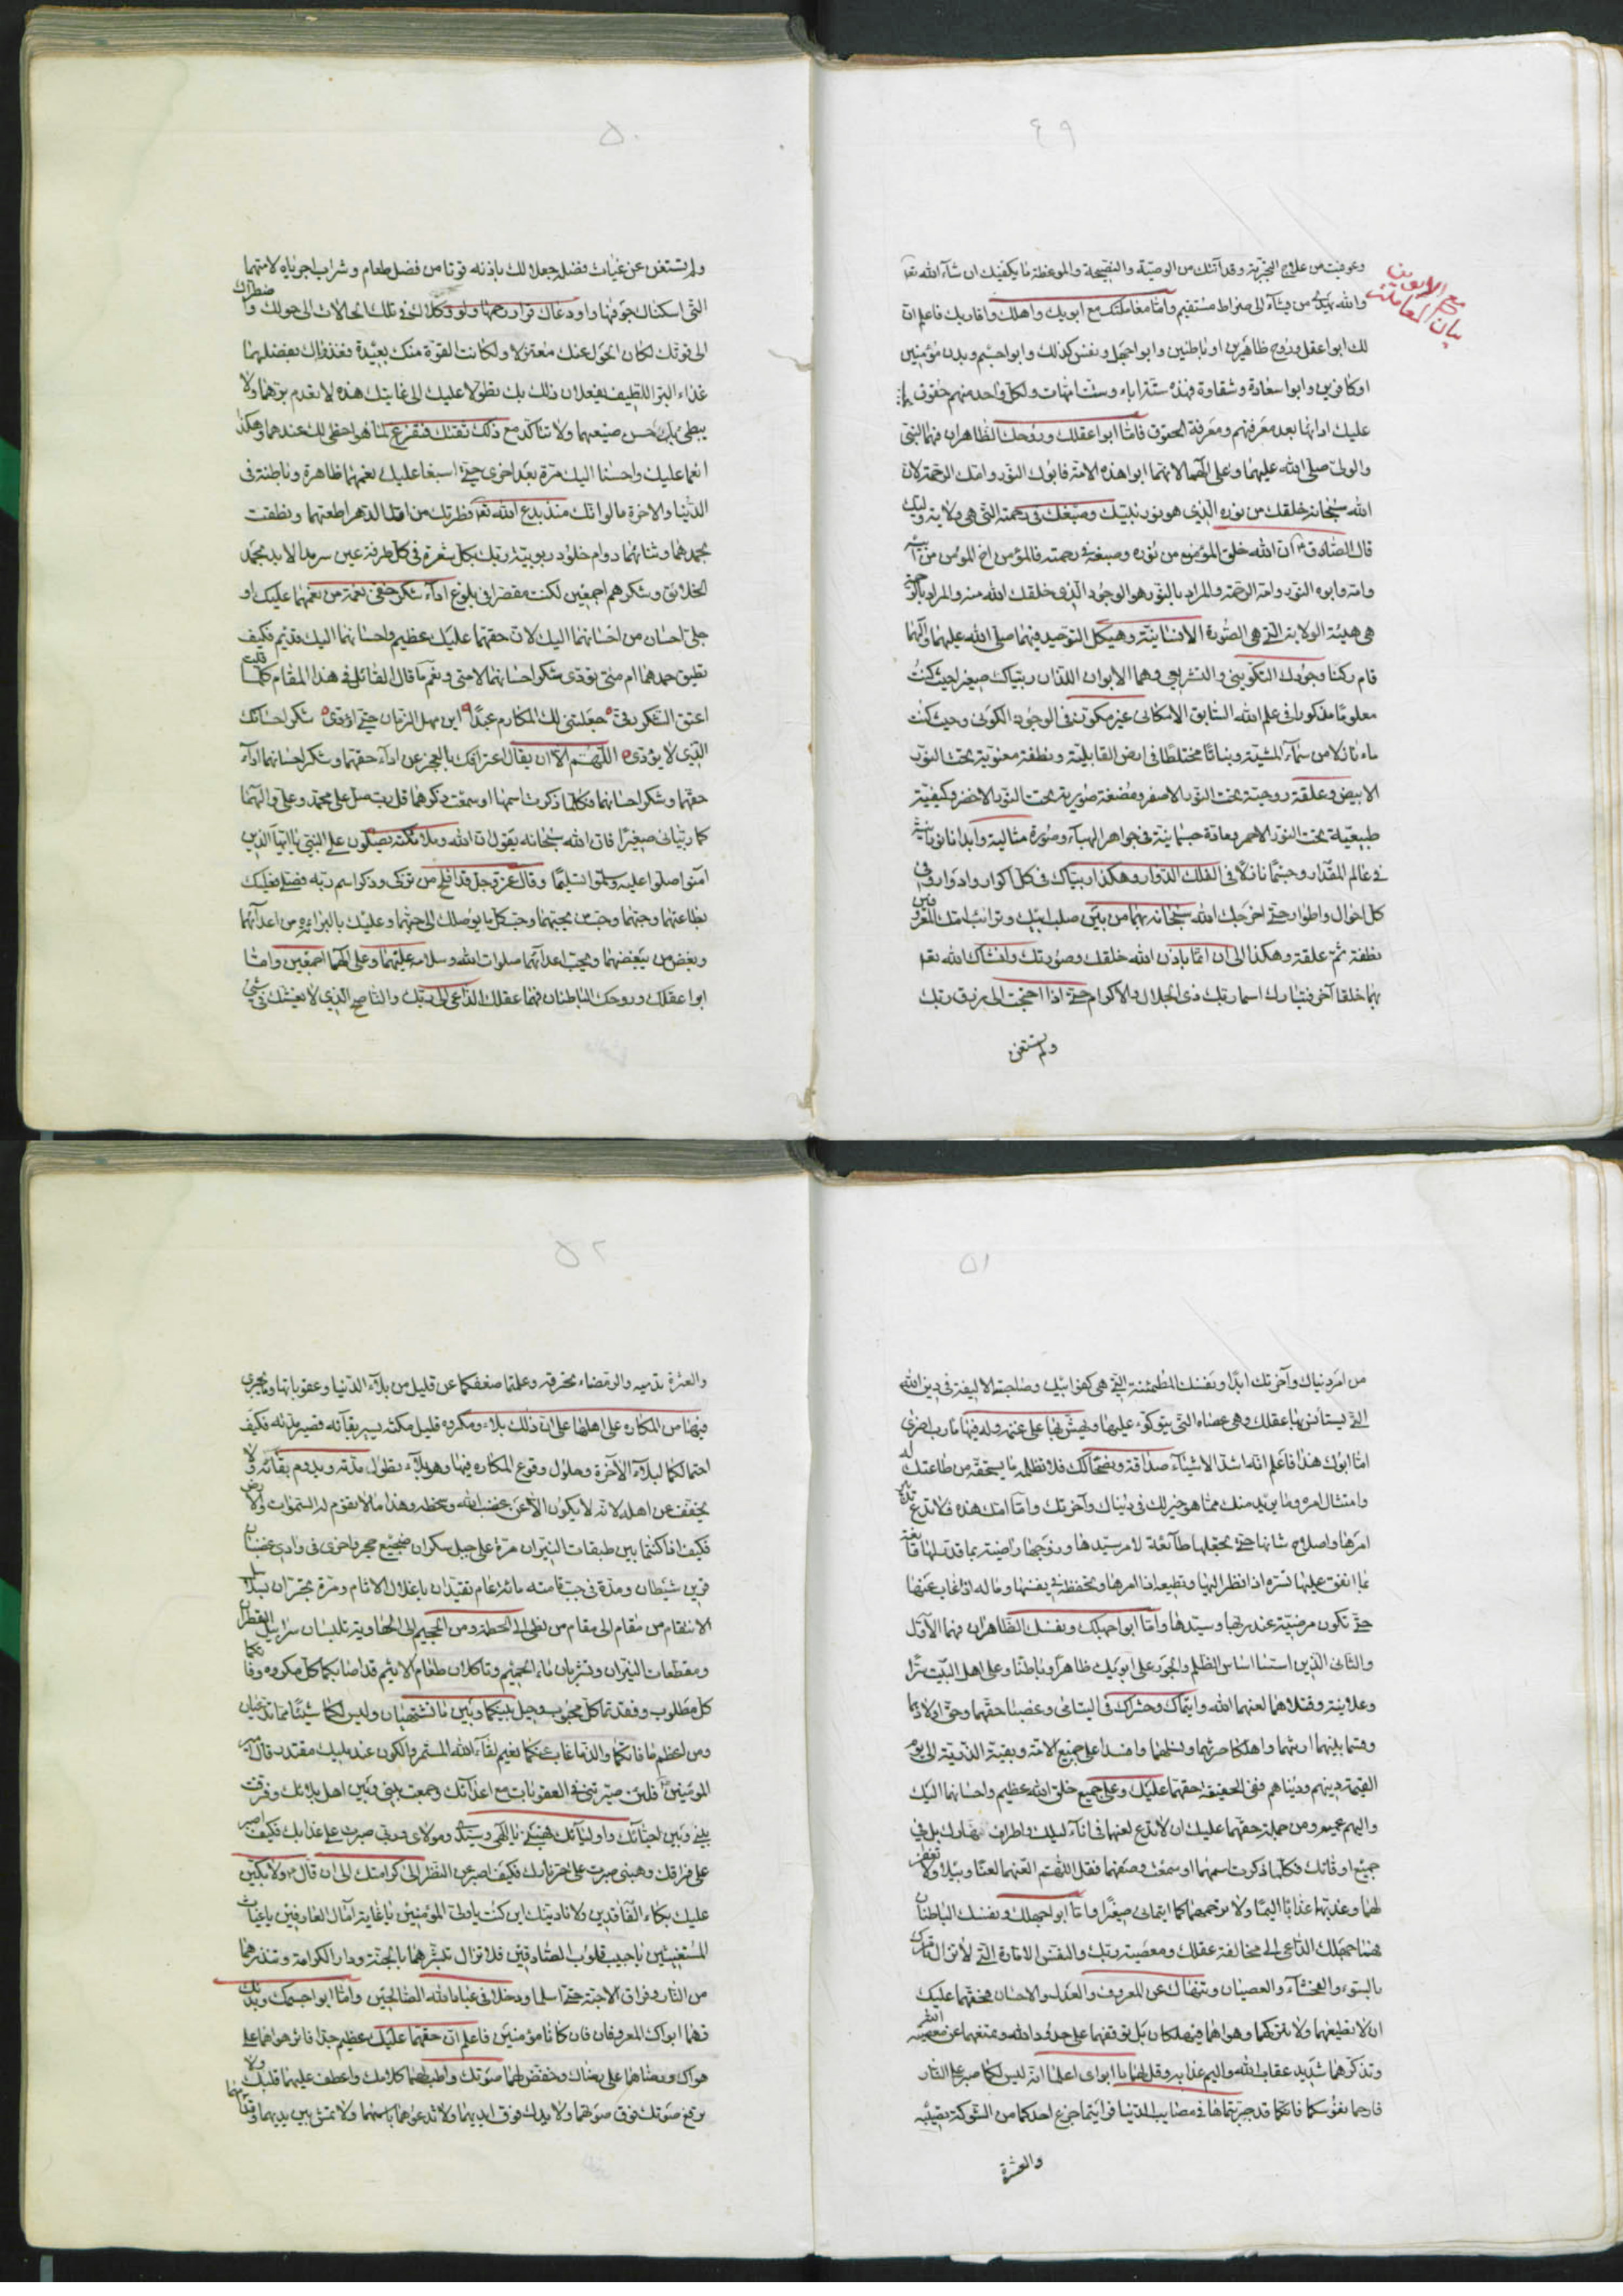 ٤٩
وعوفيت من علاج التجربة وقد آتتك من الوصية والنصيحة والموعظة ما يكفيك ان شآء الله تعا
والله يهدي من يشآء الى صراط مستقيم وامّا معاملتك مع ابويك واهلك واقاربك فاعلم ان
بيان المعاملة مع الابوين
لك ابوا عقل وروح ظاهرين او باطنين وابوا جهل ونفس كذلك وابوا جسم وبدن مؤمنين
او كافرين وابوا سعادة وشقاوة فهذه ستة اباء وست امّهات ولكل واحد منهم حقوق
عليك ادائها بعد معرفتهم ومعرفة الحقوق فامّا ابوا عقلك وروحك الظاهران فهما النبي
والولي صلى الله عليهما وعلى آلهما لانهما ابوا هذه الامة فابوك النور وامك الرحمة لان
الله سبحانه خلقك من نوره الذي هو نور نبيك وصبغك في رحمته التي هي ولاية وليك
قال الصادق ان الله خلق المؤمنين من نوره وصبغهم في رحمته فالمؤمن اخ المؤمن من ابيه
وامه وابوه النور وامه الرحمة والمراد بالنور هو الوجود الذي خلقك الله منه والمراد بالرحمة
هي هيئة الولاية التي هي الصورة الانسانية وهيكل التوحيد فبهما صلى الله عليهما وآلهما
قام ركنا وجودك التكويني والتشريعي وهما الابوان اللذان ربياك صغيرا حيث كنت
معلومًا مذكورا في علم الله السابق الامكاني غير مكون في الوجود الكوني وحيث كنت
ماء نازلا من سمآء المشية ونباتًا مختلطًا في ارض القابلية ونطفة معنوية تحت النور
الابيض وعلقة روحية تحت النور الاصفر ومضغة صورية تحت النور الاخضر وكيفية
طبيعية تحت النور الاحمر ومادة جسمانية في جواهر الهبآء وصورة مثالية وابدانا نورانية
في عالم المقدار وجسمًا نازلًا في الفلك الدوار وهكذا ربياك في كل اكوار وادوار وفي
كل احوال واطوار حتى اخرجك الله سبحانه بهما من بين صلب ابيك وترائب امك
نطفة ثم علقة وهكذا الى ان امّا باذن الله خلقك وصورتك وانشاك الله تعا
بهما خلقا آخر فتبارك اسما ربك ذي الجلال والاكرام حتى اذا احتجت الى رزق ربك
ولم تستغن
٥٠
ولم تستغن عن غياث فضله جعلا لك باذنه قوتا من فضل طعام وشراب اجرياه لامتهما
التي اسكناك جوفها واودعاك قرار رحمها ولو وكلاك في تلك الحالات الى حولك واضطراك
الى قوتك لكان الحول عنك معتزلا ولكانت القوة منك بعيدة فغذواك بفضلهما
غذاء البر اللطيف يفعلان ذلك بك تطولا عليك الى غايتك هذه لا تعدم برهما ولا
يبطئ بك حسن صنيعهما ولا تتاكد مع ذلك ثقتك فتفرغ لما هو احظى لك عندهما وهكذا
انعما عليك واحسنا اليك مرة بعد اخرى حتى اسبغا عليك نعمهما ظاهرة وباطنة في
الدنيا والاخرة ما لو انك منذ بدع الله تعا فطرتك من اول الدهر اطعتهما ونطقت
بحمدهما وثنائهما دوام خلود ربوبية ربك بكل شعرة في كل طرفة عين سرمد الابد بحمد
الخلائق وشكرهم اجمعين لكنت مقصرا في بلوغ ادآء شكر خفي نعمة من نعمهما عليك او
جلي احسان من احسانهما اليك لان حقهما عليك عظيم واحسانهما اليك قديم فكيف
تطيق حمدهما ام متى تؤدي شكر احسانهما لا متى ونعم ما قال القائل في هذا المقام كلما قلت
اعتق الشكر رقي ه جعلتني لك المكارم عبدًا ه اين مهل الزمان حتى اؤدي ه شكر احسانك
الذي لا يؤدى ه اللهم الا ان يقال اعترافك بالعجز عن ادآء حقهما وشكر احسانهما ادآء
حقهما وشكر احسانهما فكلما ذكرت اسمهما او سمعت ذكرهما قل رب صل على محمد وعلي وآلهما
كما ربياني صغيرًا فان الله سبحانه يقول ان الله وملائكته يصلون على النبي يا ايها الذين
آمنوا صلوا عليه وسلموا تسليمًا وقال عز وجل قد افلح من تزكى وذكر اسم ربه فصلى فعليك
بطاعتهما وحبهما وحب من يحبهما وحب كل ما يوصلك الى حبهما وعليك بالبراءة من اعدآئهما
وبغض من يبغضهما ويحب اعدآئهما صلوات الله وسلامه عليهما وعلى آلهما اجمعين وامّا
ابوا عقلك وروحك الباطنان فهما عقلك الداعي الى ربك والناصح الذي لا يغشك في شيئ
٥١
من امر دنياك وآخرتك ابدًا ونفسك المطمئنة التي هي كفو ابيك وصاحبته الاليفة في دين الله
التي يستأنس بها عقلك وهي عصاه التي يتوكؤ عليها ويهش بها على غنمه وله فيها مآرب اخرى
امّا ابوك هذا فاعلم انه اشد الاشيآء صداقة ونصحا لك فلا تظلمه ما يستحقه من طاعتك له
وامتثال امره وما يريد منك مما هو خير لك في دنياك وآخرتك وامّا امك هذه فلا تدع
امرها واصلاح شانها حتى تجعلها طائعة لامر سيدها وزوجها راضية بما قدر لها قانعة
بما انفق عليها تسره اذا نظر اليها وتطيعه اذا امرها وتحفظه في نفسها وماله اذا غاب عنها
حتى تكون مرضية عند ربها وسيدها وامّا ابوا جهلك ونفسك الظاهران فهما الاول
والثاني الذين اسسا اساس الظلم والجور على ابويك ظاهرًا وباطنًا وعلى اهل البيت سرًا
وعلانية وقتلاهما لعنهما الله وايتماك وحشراك في اليتامى وغصبا حقهما وحق اولادهما
وقسما بينهما ارثهما واهلكا حرثهما ونسلهما وافسدا على جميع الامة وبقية الذرية الى يوم
القيمة دينهم ودنياهم ففي الحقيقة حقهما عليك وعلى جميع خلق الله عظيم واحسانهما اليك
واليهم عميم ومن جملة حقهما عليك ان لا تدع لعنهما في انآء ليلك واطراف نهارك بل في
جميع اوقاتك فكلما ذكرت اسمهما او سمعت وصفهما فقل اللهم العنهما لعنًا وبيلا ولا تغفر
لهما وعذبهما عذابًا اليمًا ولا ترحمهما كما ايتماني صغيرًا وامّا ابوا جهلك ونفسك الباطنان
فهما جهلك الداعي الى مخالفة عقلك ومعصية ربك والنفس الامارة التي لا تزال تامرك
بالسوء والفحشآء والعصيان وتنهاك عن المعروف والعدل والاحسان فحقهما عليك
ان لا تطيعهما ولا تتركهما وهواهما فيهلكان بل توقفهما على حدود الله وتمنعهما عن معصيته
وتذكرهما شديد عقاب الله واليم عذابه وقل لهما يا ابواي اعلما انه ليس لكما صبر على النار
فارحما نفوسكما فانكما قد جربتماها في مصايب الدنيا فرايتما جزع احدكما من الشوكة تصيبه
والعثرة
٥٢
والعثرة تدميه والرمضاء تحرقه وعلمتما ضعفكما عن قليل من بلآء الدنيا وعقوباتها وما يجري
فيها من المكاره على اهلها على ان ذلك بلاء ومكروه قليل مكثه يسير بقآئه قصير مدته فكيف
احتمالكما لبلآء الآخرة وحلول وقوع المكاره فيها وهو بلآء تطول مدته ويدوم بقآئه ولا
يخفف عن اهله لانه لا يكون الا عن غضب الله وسخطه وهذا ما لا تقوم له السموات والارض
فكيف اذا كنتما بين طبقات النيران مرة على جبل سكران ضجيع حجر واخرى في وادي غضبان
قرين شيطان ومدة في جب قامته مائة عام تقيدان باغلال الاثام ومرة تجران بسلاسل
الانتقام من مقام الى مقام من لظى الى الحطمة ومن الجحيم الى الهاوية تلبسان سرابيل القطران
ومقطعات النيران وتشربان ماء الحميم وتاكلان طعام الاثيم قد اصابكما كل مكروه وفاتكما
كل مطلوب وفقدتما كل محبوب وحيل بينكما وبين ما تشتهيان وليس لكما شيئًا مما تدعيان
ومن اعظم ما فاتكما والذ ما غاب عنكما نعيم لقآء الله المستمر والكون عند مليك مقتدر قال امير
المؤمنين فلئن صيرتني في العقوبات مع اعدآئك وجمعت بيني وبين اهل بلائك وفرقت
بيني وبين احبآئك واوليآئك فهبني يا الهي وسيدي ومولاي وربي صبرت على عذابك فكيف اصبر
على فراقك وهبني صبرت على حر نارك فكيف اصبر عن النظر الى كرامتك الى ان قال ولابكين
عليك بكاء الفاقدين ولانادينك اين كنت يا ولي المؤمنين يا غاية آمال العارفين يا غياث
المستغيثين يا حبيب قلوب الصادقين فلا تزال تبشرهما بالجنة ودار الكرامة وتنذرهما
من النار وفراق الاحبة حتى اسلما ويدخلا في عباد الله الصالحين وامّا ابوا جسمك وبدنك
فهما ابواك المعروفان فان كانا مؤمنين فاعلم ان حقهما عليك عظيم جدا فاثر هواهما على
هواك ورضاهما على رضاك وخفض لهما صوتك واطب لهما كلامك واعطف عليهما قلبك ولا
ترفع صوتك فوق صوتهما ولا يدك فوق ايديهما ولا تدعوهما باسمهما ولا تمش بين يديهما